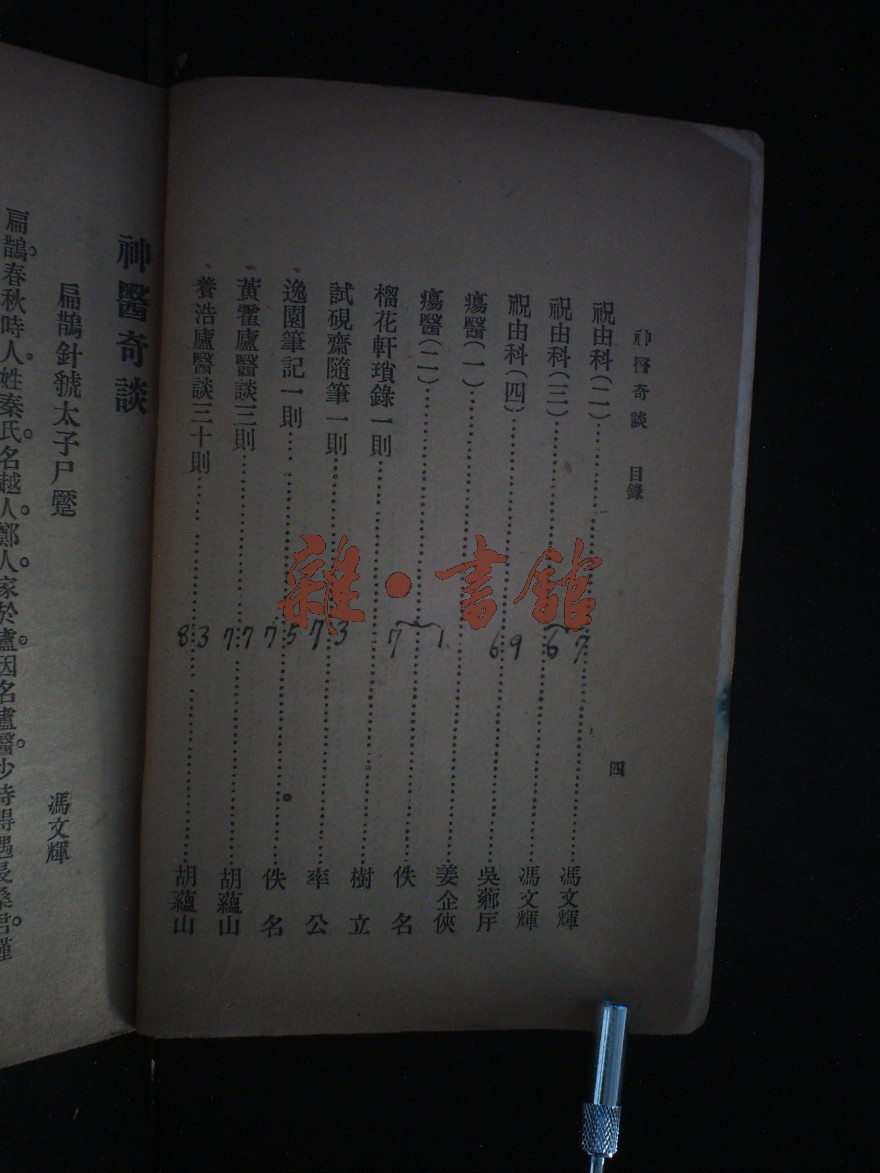 神醫奇談 目錄 四
祝由科(二)……馮文輝
祝由科(三)……馮文輝
67
祝由科(四)……69……
瘍醫(一)……姜企俠
瘍醫(二)……佚名
71
榴花軒瑣錄一則……樹立
試硯齋隨筆一則……73……率公
逸園筆記一則……75……佚名
黃霍廬醫談三則……77……胡蘊山
養浩廬醫談三十則……83……胡蘊山
神醫奇談
扁鵲針虢太子尸蹷 馮文輝
扁鵲。春秋時人。姓秦氏。名越人。鄭人。家於盧。因名盧醫。少時得遇長桑君。謹
雜·書館